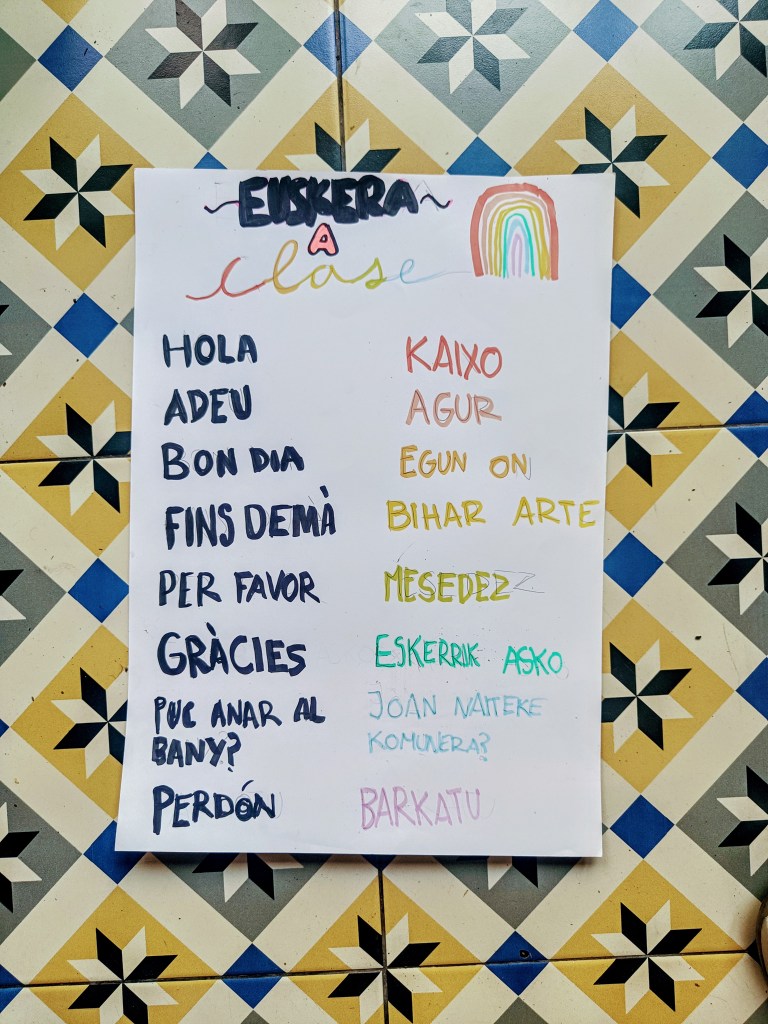 ~EUSKERA~
A
clase
HOLA KAIXO
ADEU AGUR
BON DIA EGUN ON
FINS DEMÀ BIHAR ARTE
PER FAVOR MESEDEZ
GRÀCIES ESKERRIK ASKO
PUC ANAR AL JOAN NAITEKE
BANY? KOMUNERA?
PERDÓN BARKATU